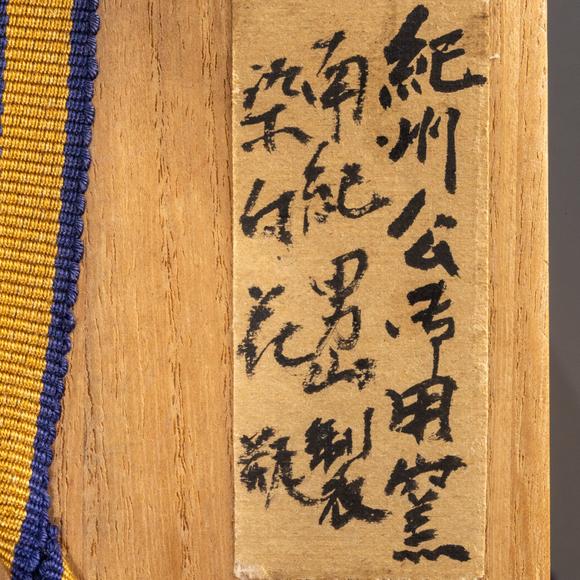 紀州公御用窯
南紀男山製
染付花瓶